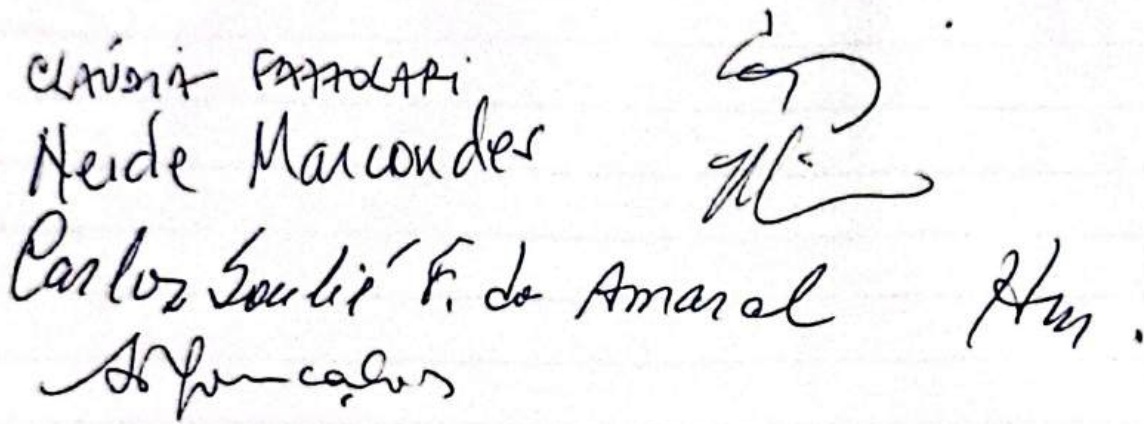 CLÁUDIA FAZZOLARI
Neide Marcondes
Carlos Soulié F. do Amaral
Gonçalves